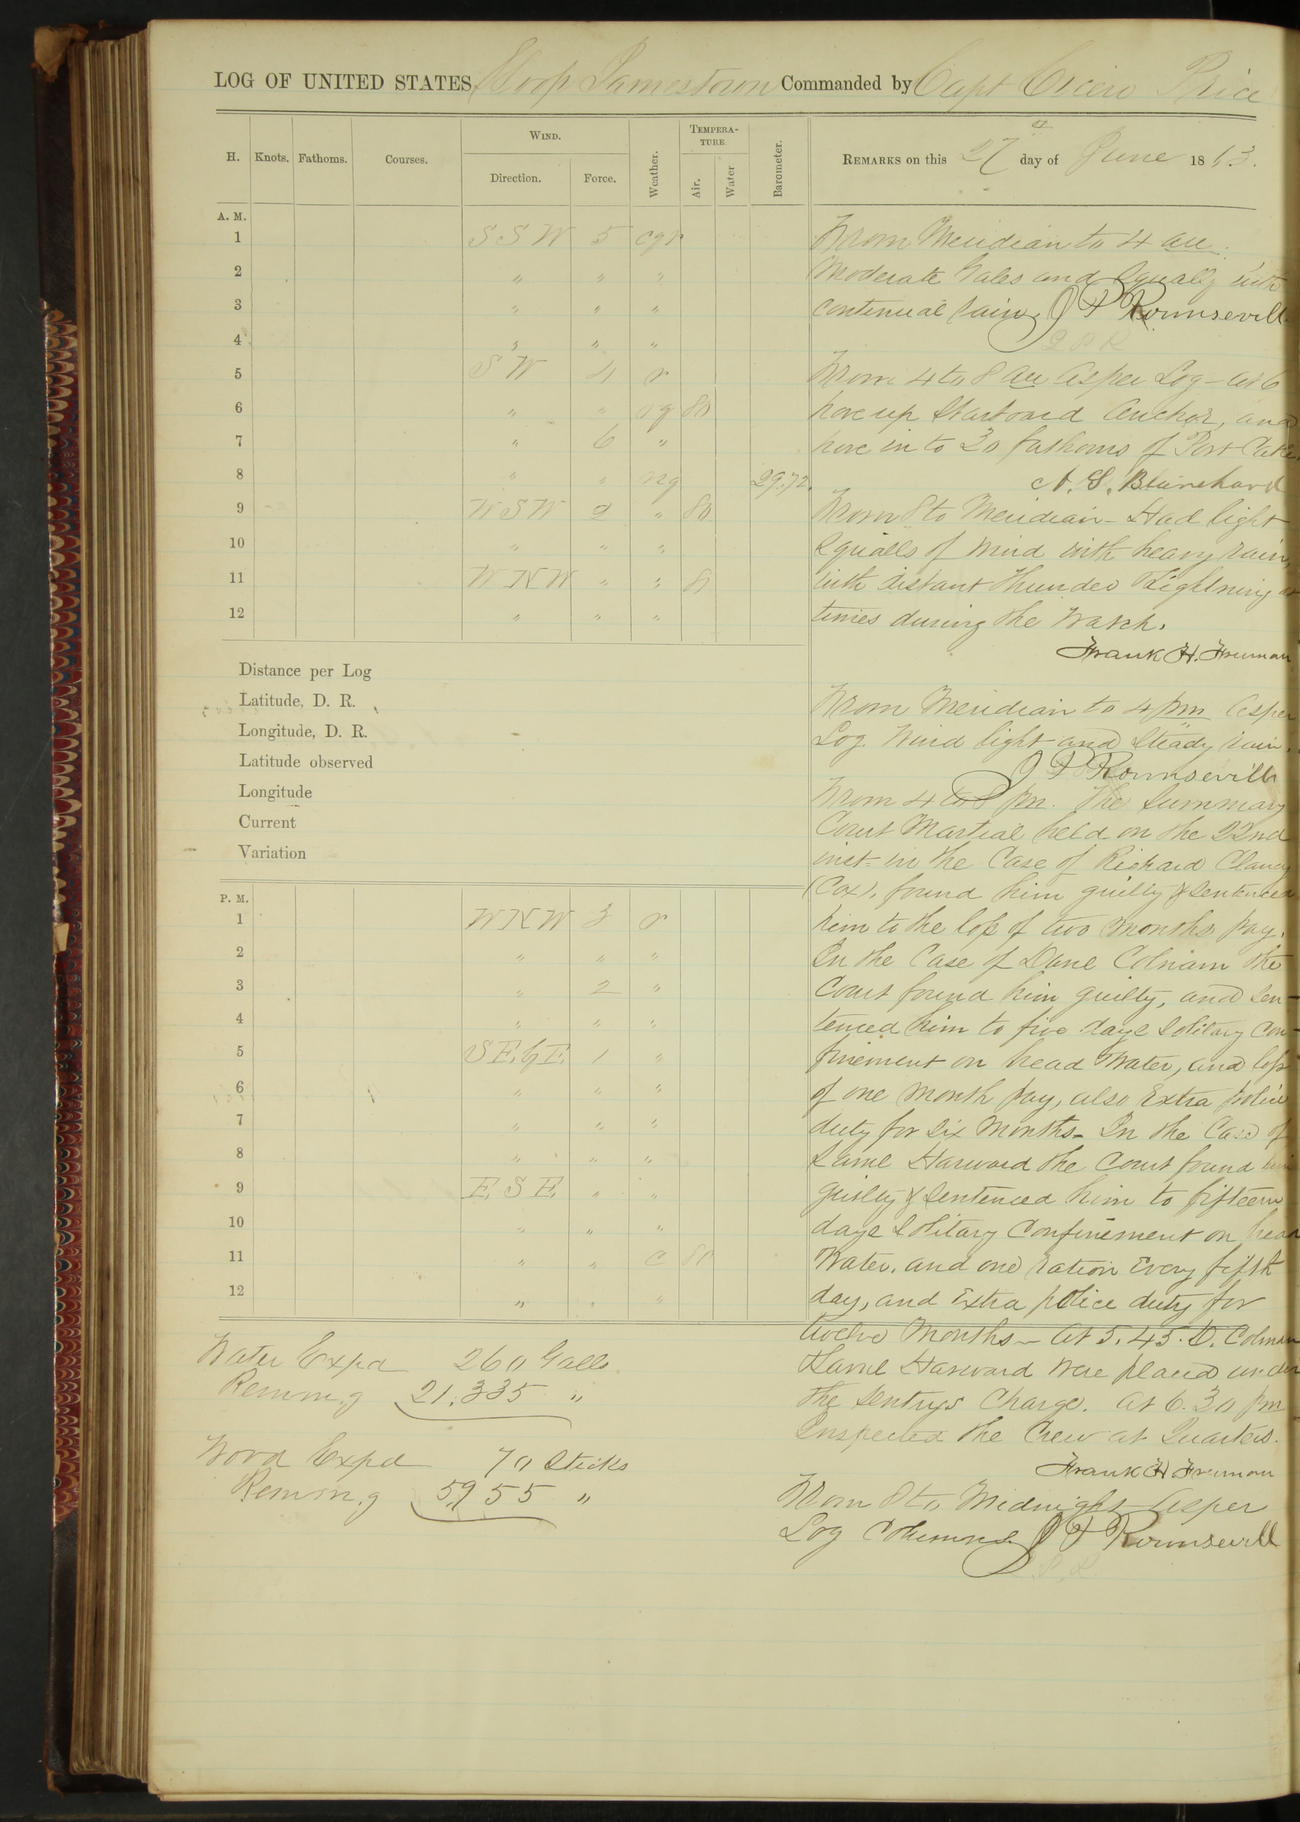 LOG OF UNITED STATES Sloop Jamestown Commanded by Capt Cicero Price
H. Knots. Fathoms. Courses. WIND. Direction. Force. Weather. TEMPERATURE Air. Water Barometer. REMARKS on this 27th day of June 1863.
A. M.
1 S S W 5 cqr
2 " " "
3 " " "
4 " " "
5 S W 4 r
6 " " 80
7 " 6 "
8 " " 29.72
9 W S W 2 " 80
10 " " "
11 W N W " " 81
12 " " "
Distance per Log
Latitude, D. R.
Longitude, D. R.
Latitude observed
Longitude
Current
Variation
P. M.
1 W N W 3 r
2 " " "
3 " 2 "
4 " " "
5 S E by E 1 "
6 " " "
7 " " "
8 " " "
9 E S E " "
10 " " "
11 " " c 80
12 " " "
Water Expd 260 Galls
Remng 21.335 "
Wood Expd 70 Sticks
Remng 5955 "
From Meridian to 4 am.
Moderate Gales and Squally with
continual rain. J P Rounsevill
From 4 to 8 am as per Log - at 6
hove up Starboard Anchor, and
hove in to 30 fathoms of Port Chain.
N. S. Blanchard
From 8 to Meridian - Had light
squalls of wind with heavy rain,
with distant thunder & lightning at
times during the Watch.
Frank H. Freeman
From Meridian to 4 pm as per
Log. Wind light and steady rain.
J P Rounsevill
From 4 to 8 pm. The Summary
Court Martial held on the 22nd
inst. in the Case of Richard Clancy
(Cox). found him guilty & sentenced
him to the loss of two months pay.
In the Case of Danl Colman the
Court found him guilty, and sen-
tenced him to five days solitary con-
finement on bread & Water, and loss
of one month pay, also Extra police
duty for six Months - In the Case of
Saml Harward the Court found him
guilty & sentenced him to fifteen
days solitary Confinement on bread
Water. and one ration Every fifth
day, and Extra police duty for
twelve Months - At 5.45. D. Colman
& Saml Harward were placed under
the Sentrys Charge. At 6.30 pm
Inspected the Crew at Quarters.
Frank H Freeman
From 8 to Midnight as per
Log Columns. J P Rounsevill